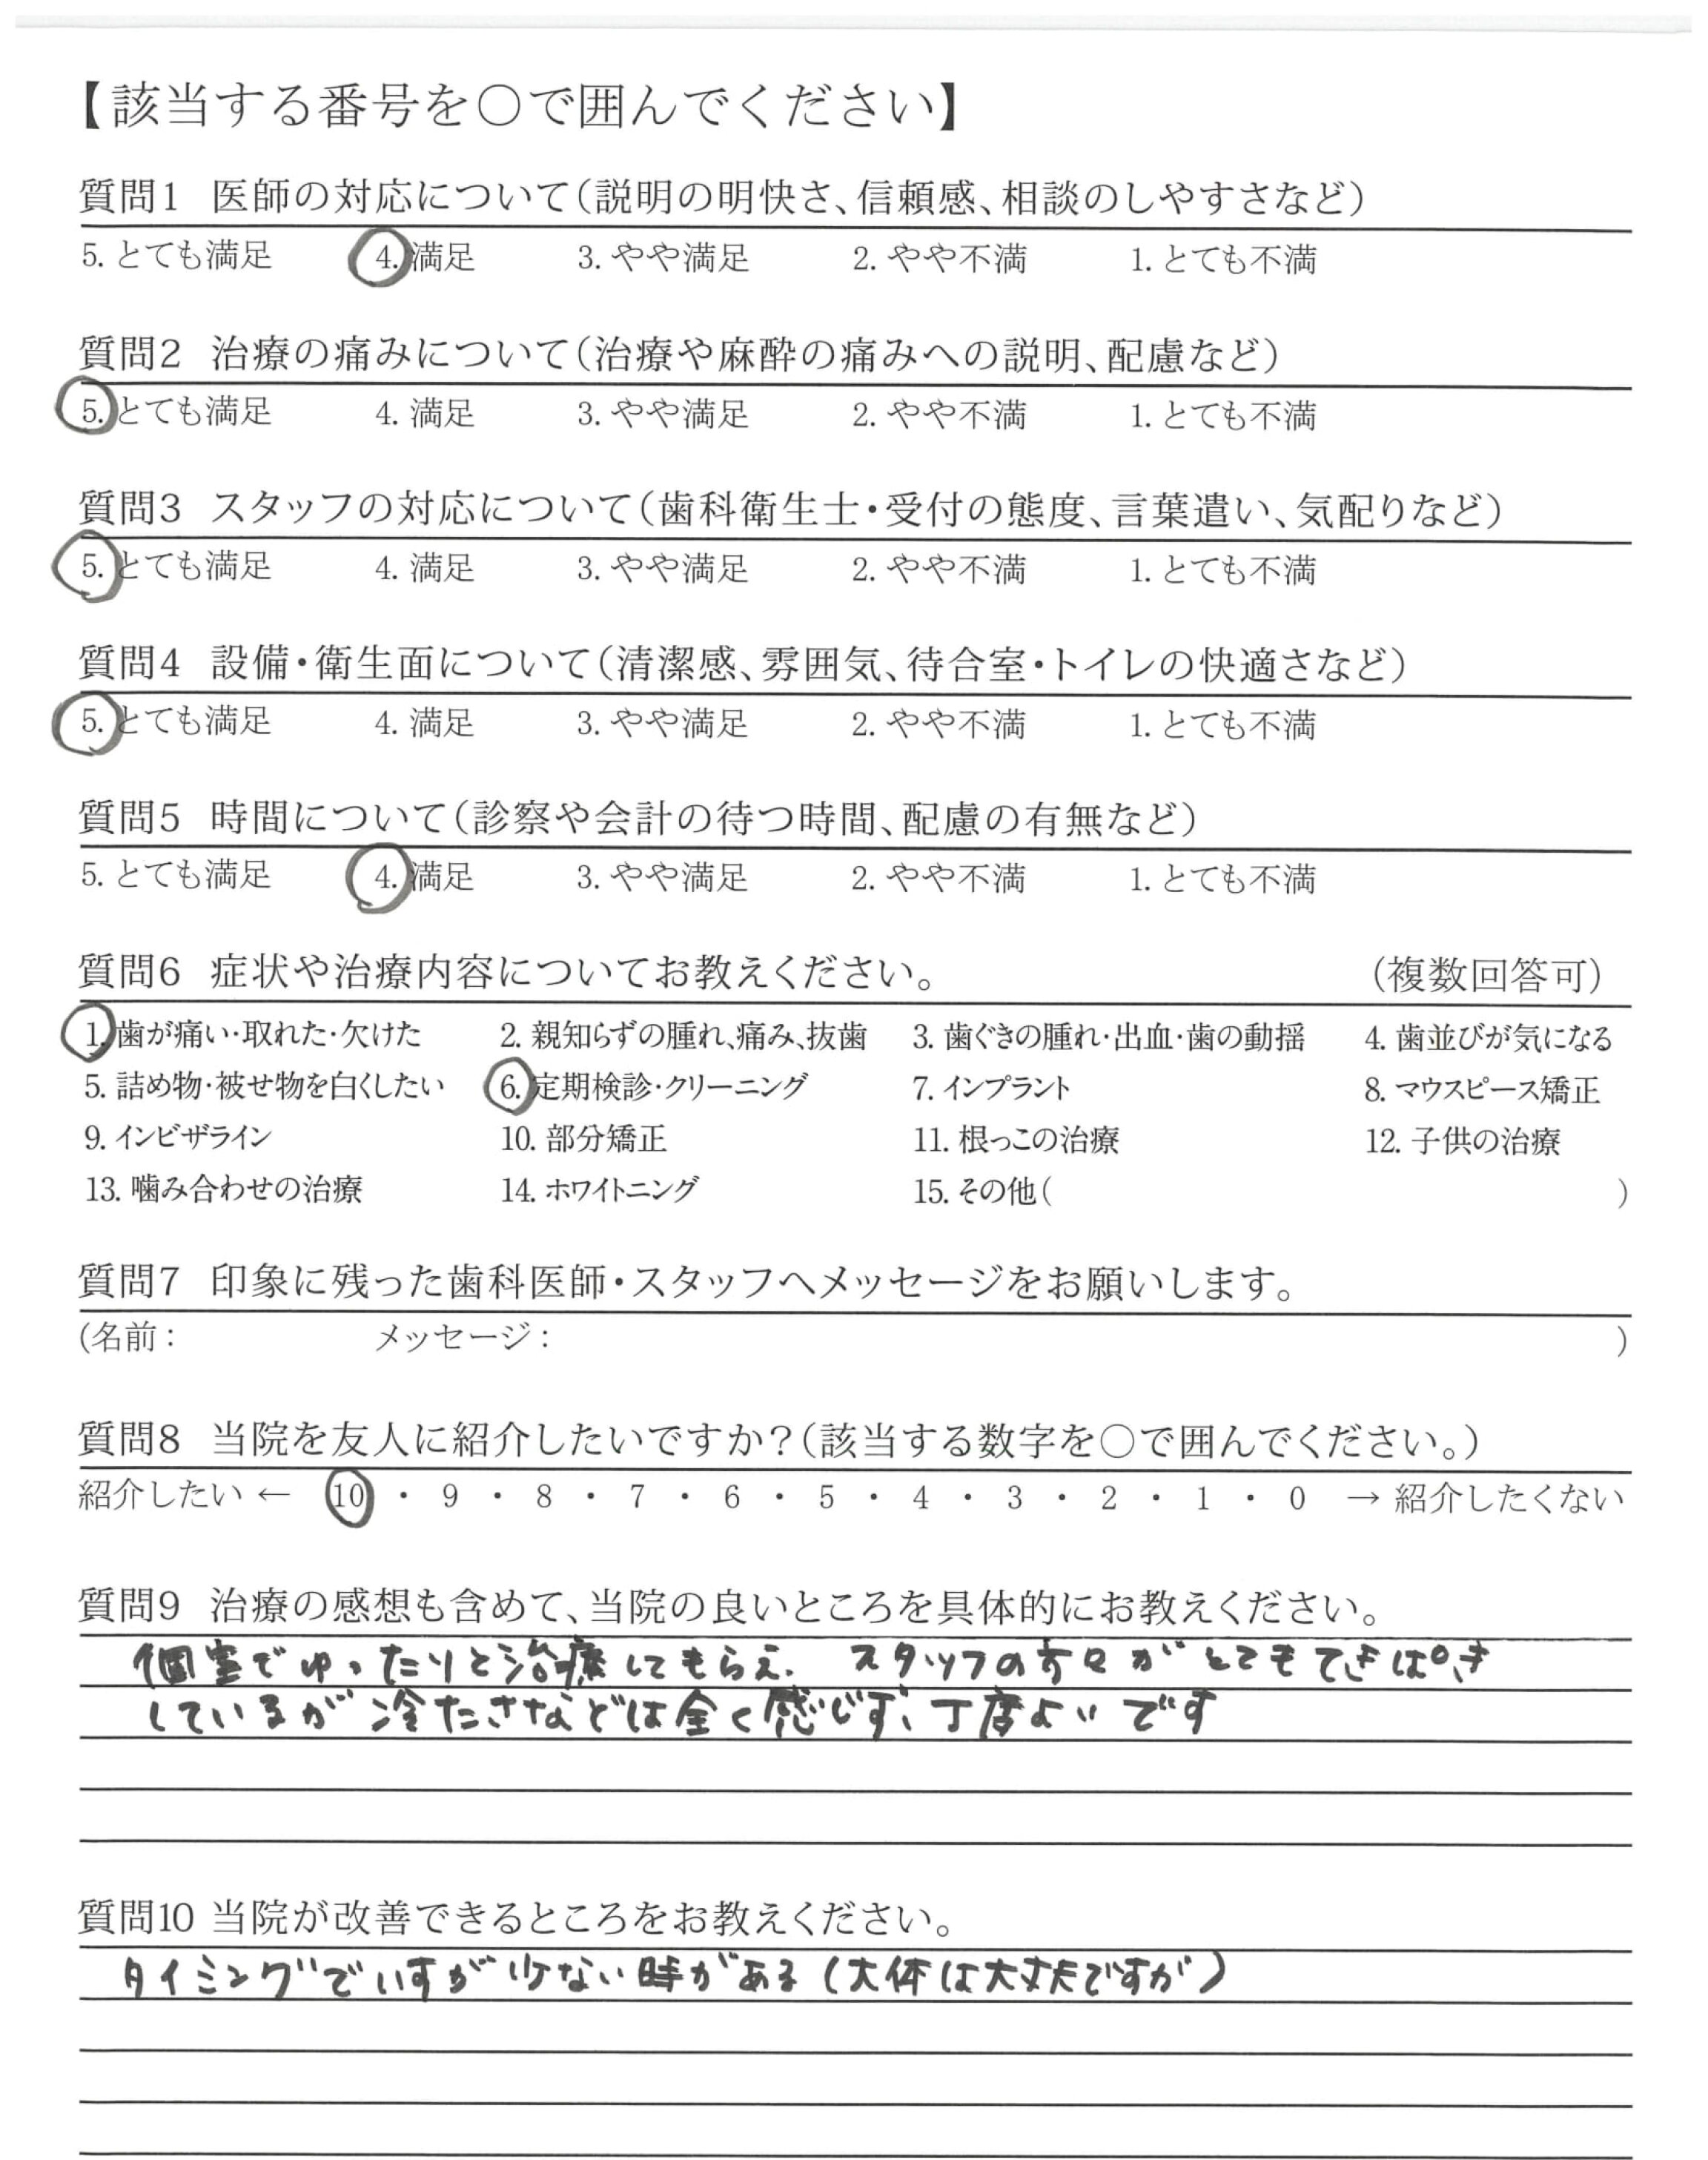 【該当する番号を〇で囲んでください】
質問1 医師の対応について(説明の明快さ、信頼感、相談のしやすさなど)
5. とても満足 4. 満足 3. やや満足 2. やや不満 1. とても不満
質問2 治療の痛みについて(治療や麻酔の痛みへの説明、配慮など)
5. とても満足 4. 満足 3. やや満足 2. やや不満 1. とても不満
質問3 スタッフの対応について(歯科衛生士・受付の態度、言葉遣い、気配りなど)
5. とても満足 4. 満足 3. やや満足 2. やや不満 1. とても不満
質問4 設備・衛生面について(清潔感、雰囲気、待合室・トイレの快適さなど)
5. とても満足 4. 満足 3. やや満足 2. やや不満 1. とても不満
質問5 時間について(診察や会計の待つ時間、配慮の有無など)
5. とても満足 4. 満足 3. やや満足 2. やや不満 1. とても不満
質問6 症状や治療内容についてお教えください。 (複数回答可)
1. 歯が痛い・取れた・欠けた 2. 親知らずの腫れ、痛み、抜歯 3. 歯ぐきの腫れ・出血・歯の動揺 4. 歯並びが気になる
5. 詰め物・被せ物を白くしたい 6. 定期検診・クリーニング 7. インプラント 8. マウスピース矯正
9. インビザライン 10. 部分矯正 11. 根っこの治療 12. 子供の治療
13. 噛み合わせの治療 14. ホワイトニング 15. その他( )
質問7 印象に残った歯科医師・スタッフへメッセージをお願いします。
(名前: メッセージ: )
質問8 当院を友人に紹介したいですか?(該当する数字を〇で囲んでください。)
紹介したい ← 10 ・ 9 ・ 8 ・ 7 ・ 6 ・ 5 ・ 4 ・ 3 ・ 2 ・ 1 ・ 0 → 紹介したくない
質問9 治療の感想も含めて、当院の良いところを具体的にお教えください。
個室でゆったりと治療してもらえ、スタッフの方々がとてもてきぱき
しているが冷たさなどは全く感じず、丁度よいです
質問10 当院が改善できるところをお教えください。
タイミングでいすが少ない時がある(大体は大丈夫ですが)